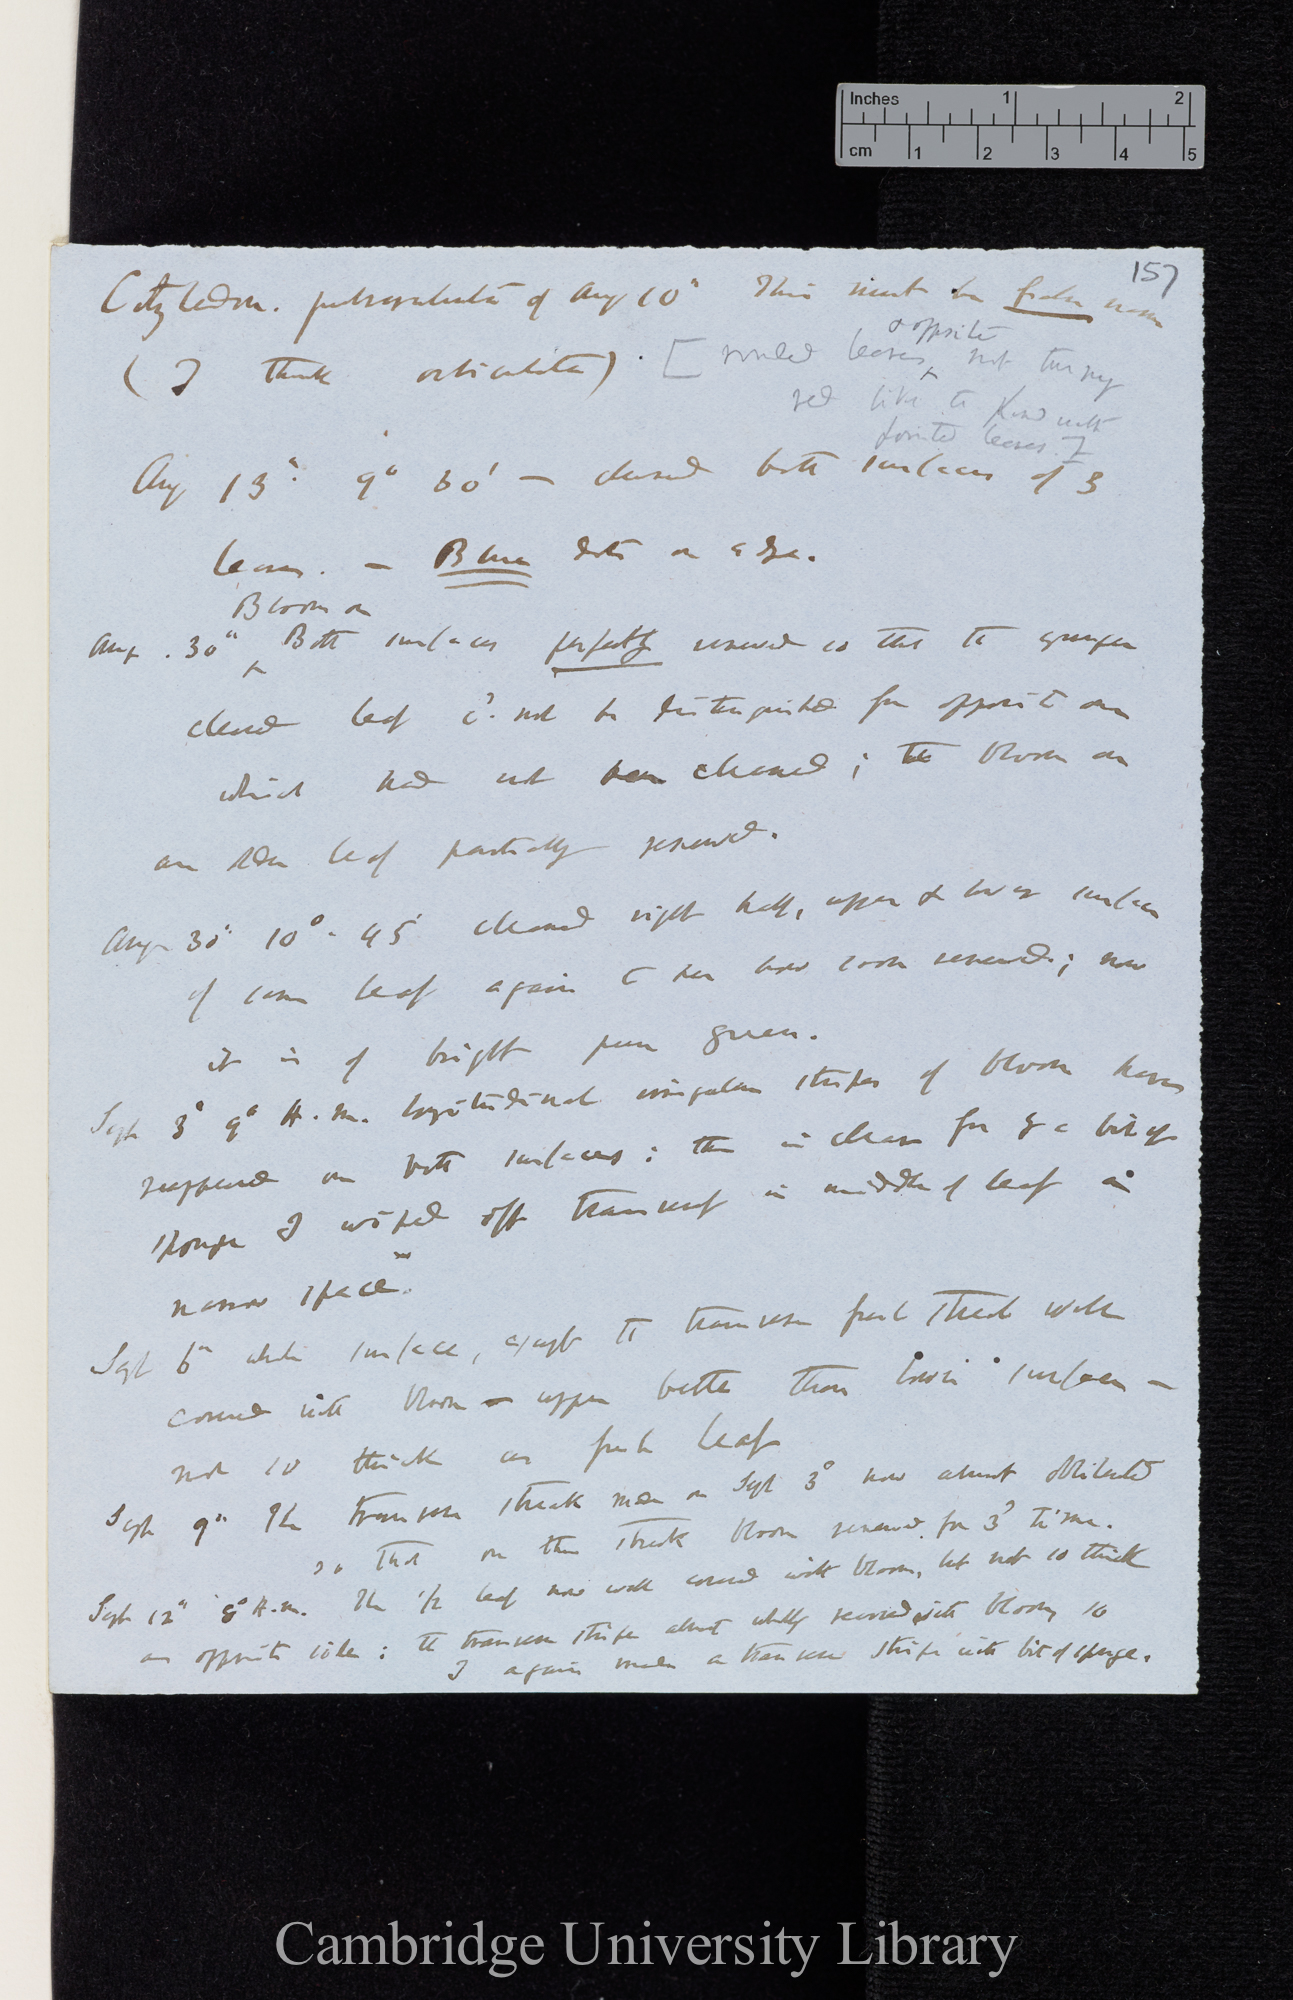 Inches 1 2
cm 1 2 3 4 5
157
Cotyledon. of Aug 10th This must be name
(I think orbiculata). [ leaves ^opposite, not turning
red like the kind with
pointed leaves.]
Aug 13th 9° 30' — cleaned both surfaces of 3
leaves. — Blue dots on edge.
Aug. 30th ^Bloom on Both surfaces perfectly renewed so that the younger
cleaned leaf cd. not be distinguished from opposite one
which had not been cleaned; the bloom on
an older leaf partially renewed.
Aug 30th 10°. 45' cleaned right half, upper & lower surfaces
of same leaf again to see how soon renewed; now
it is of bright pure green.
Sept 3d 9° A.m. longitudinal irregular stripes of bloom have
reappeared on both surfaces; this is clear for by a bit of
sponge I wiped off transversely in middle of leaf a
narrow space.
Sept 6th whole surface, except the transverse fresh streak well
covered with bloom — upper better than lower surface —
not so thick as fresh leaf
Sept 9th The transverse streak made on Sept 3d now almost obliterated
so that on this streak bloom renewed for 3d time.
Sept 12th 8° A.m. The 1/2 leaf now well covered with bloom, but not so thick
as opposite side: the transverse stripe almost wholly with bloom, so
I again made a transverse stripe with bit of sponge.
Cambridge University Library